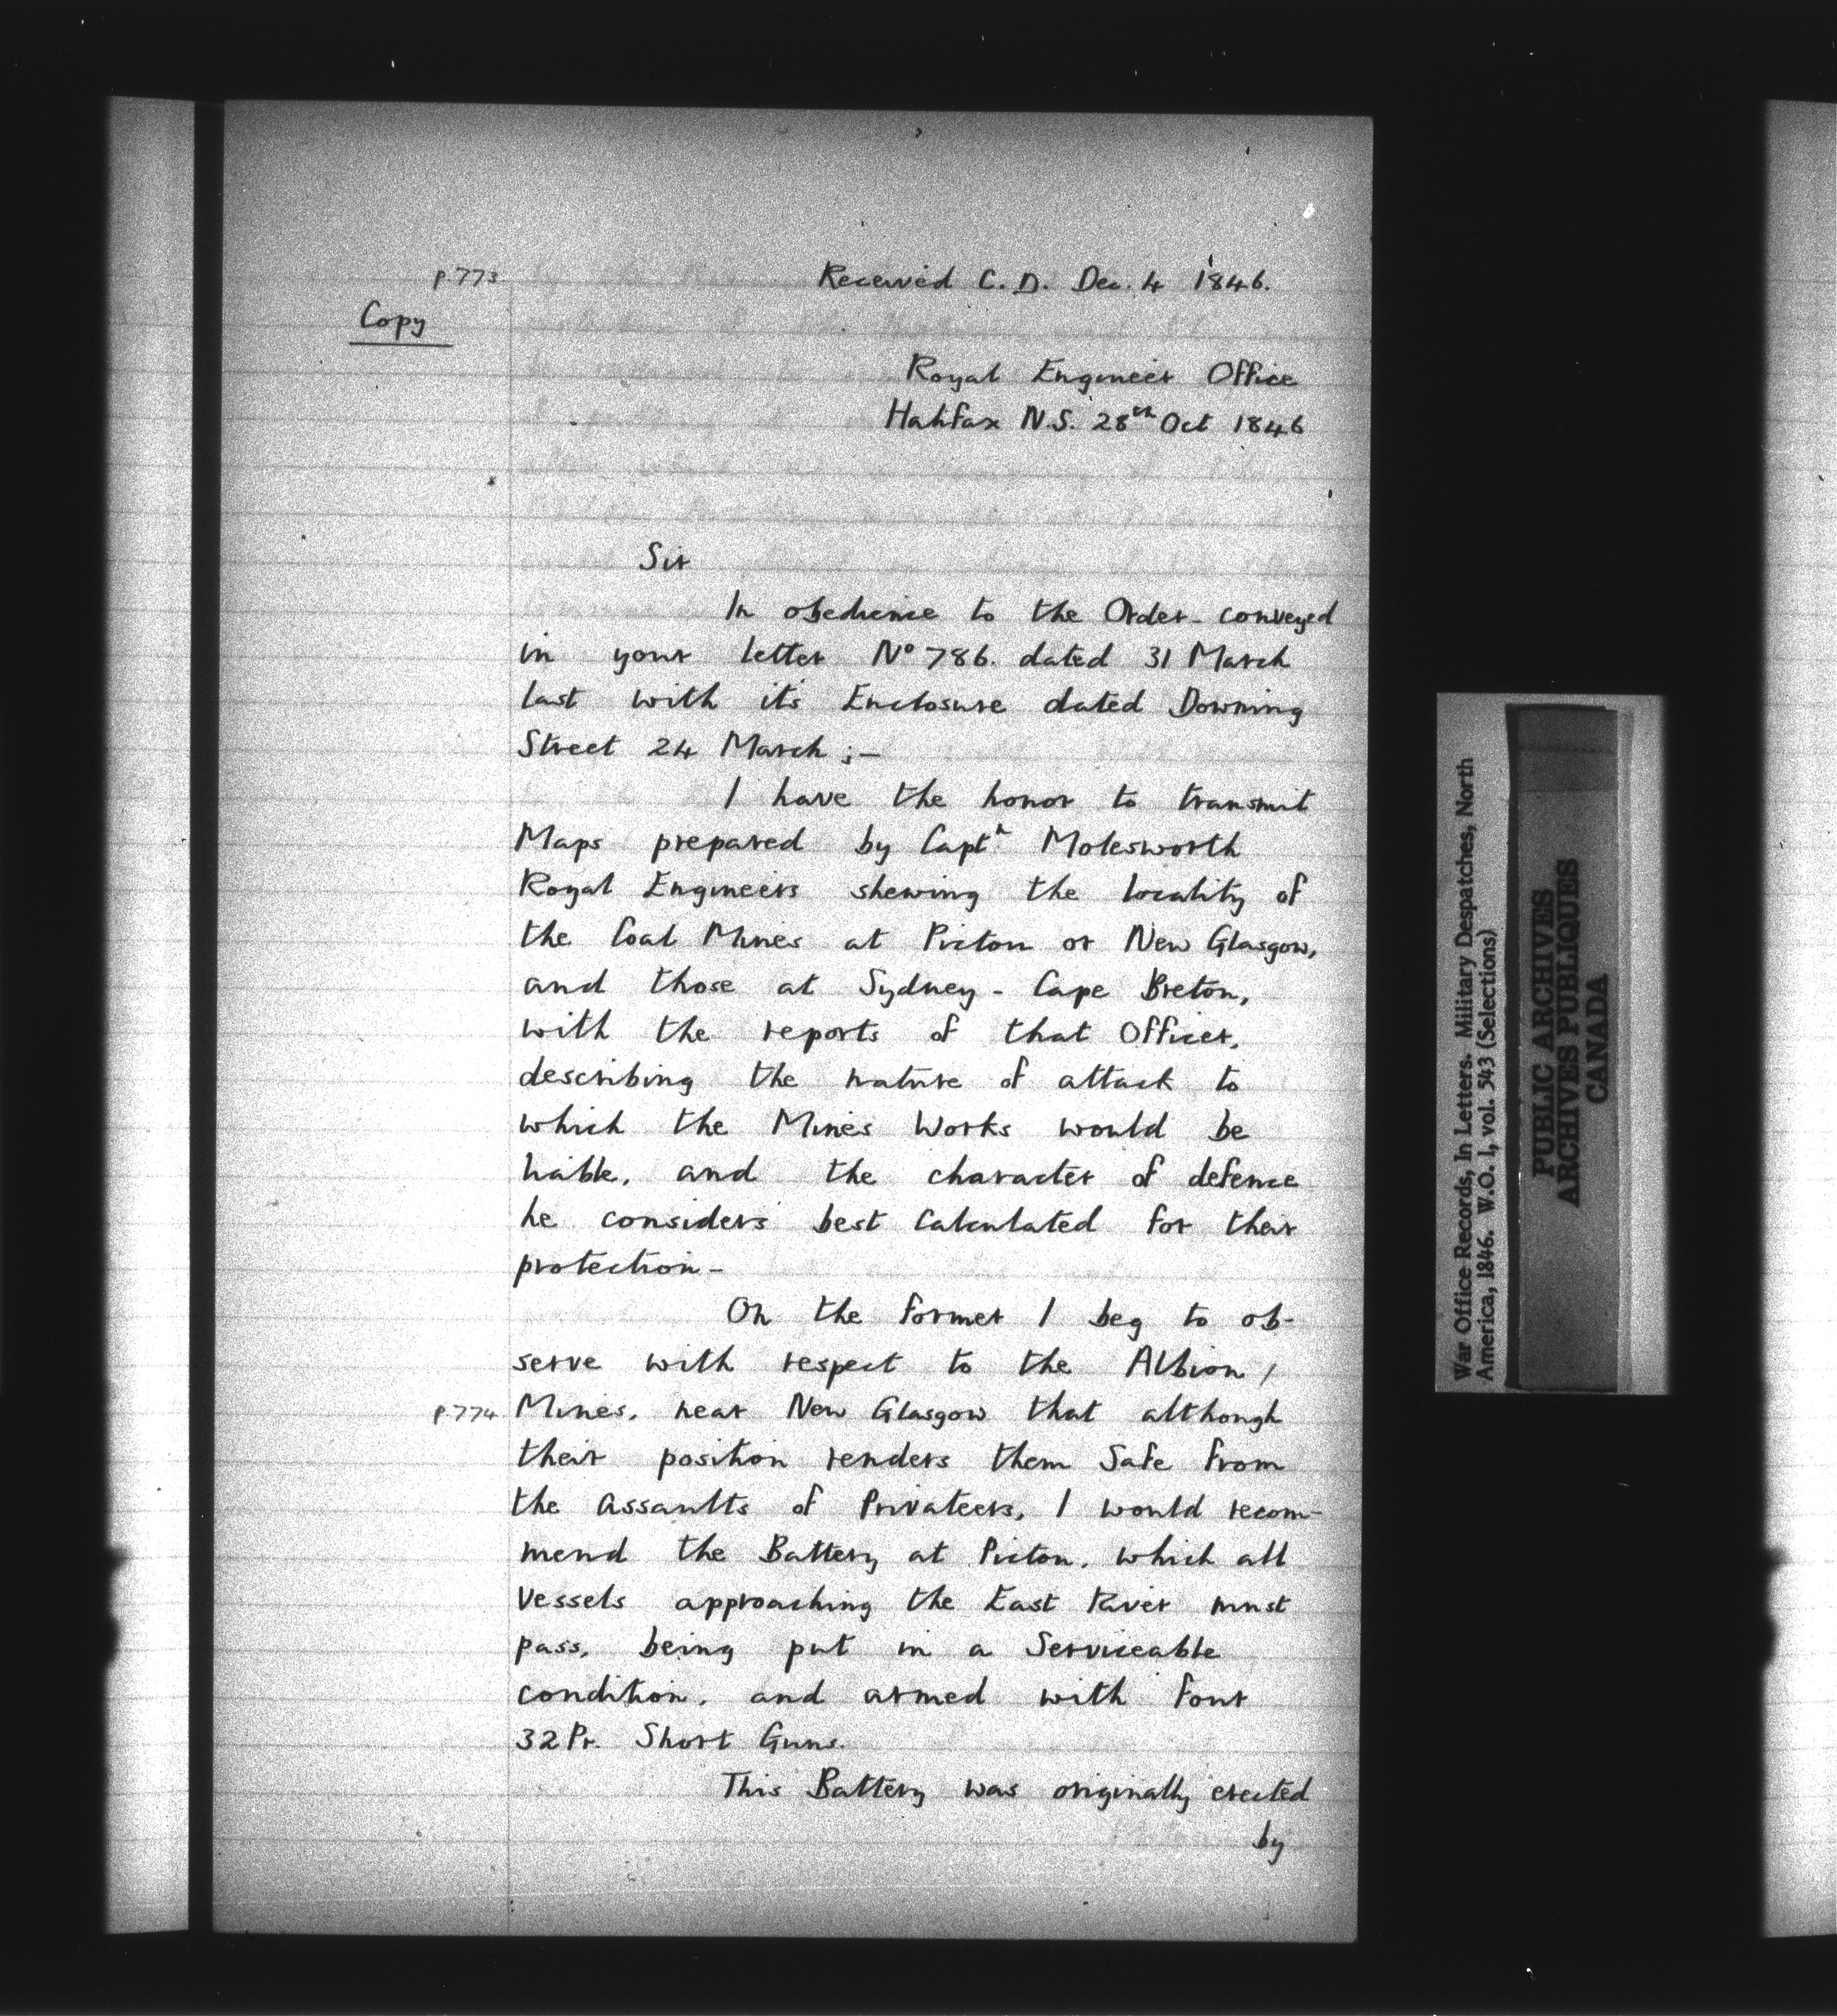 p.773
Received C.D. Dec. 4 1846.
Copy
Royal Engineer Office
Halifax N.S. 28th Oct 1846
Sir
In obedience to the Order conveyed
in your letter No 786. dated 31 March
last with its Enclosure dated Downing
Street 24 March ;—
I have the honor to transmit
Maps prepared by Captn Molesworth
Royal Engineers shewing the locality of
the Coal Mines at Picton or New Glasgow,
and those at Sydney - Cape Breton,
with the reports of that Officer,
describing the nature of attack to
which the Mines Works would be
liable, and the character of defence
he considers best Calculated for their
protection -
On the former I beg to ob-
serve with respect to the Albion /
p.774 Mines, near New Glasgow that although
their position renders them Safe from
the assaults of Privateers, I would recom-
mend the Battery at Picton, which all
Vessels approaching the East River must
pass, being put in a Serviceable
condition, and armed with four
32 Pr. Short Guns.
This Battery was originally erected
by
War Office Records, In Letters. Military Despatches, North
America, 1846. W.O. 1, vol. 543 (Selections)
PUBLIC ARCHIVES
ARCHIVES PUBLIQUES
CANADA